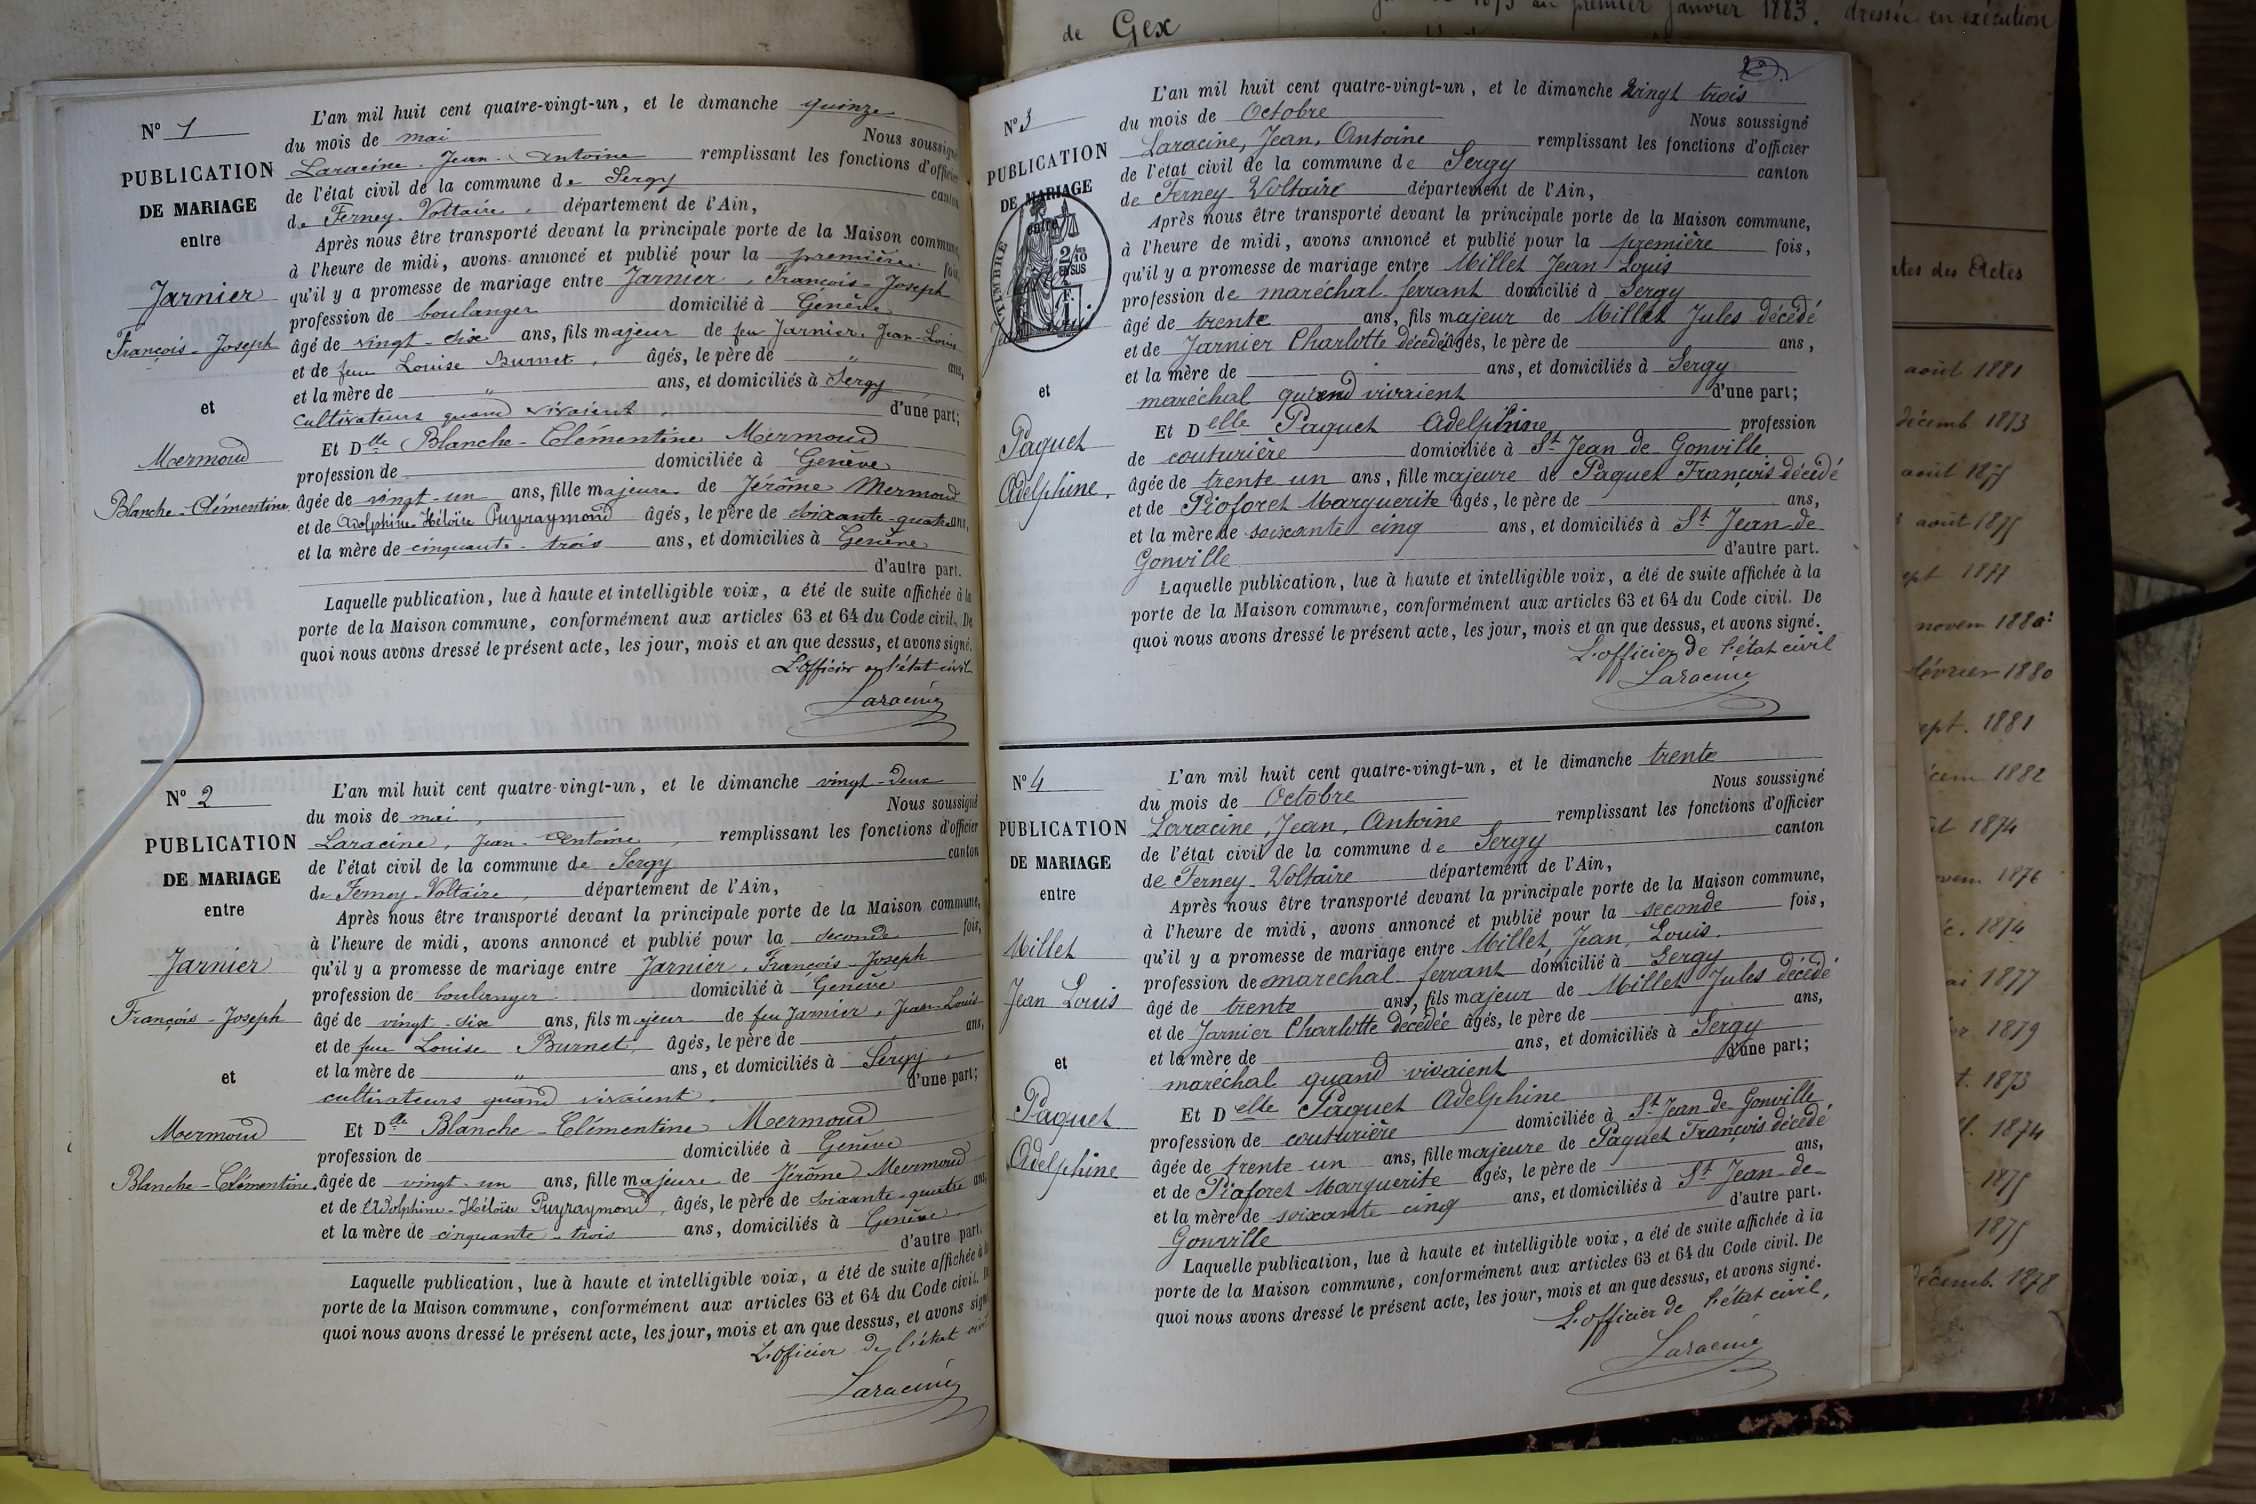 de Gex
1873 au premier janvier 1883. dressée en exécution
N° 1
PUBLICATION
DE MARIAGE
entre
Jarnier
François-Joseph
et
Mermoud
Blanche-Clémentine.
L'an mil huit cent quatre-vingt-un, et le dimanche quinze
du mois de mai Nous soussigné
Laracine Jean-Antoine remplissant les fonctions d'officier
de l'état civil de la commune de Sergy canton
de Ferney-Voltaire, département de l'Ain,
Après nous être transporté devant la principale porte de la Maison commune,
à l'heure de midi, avons annoncé et publié pour la première fois,
qu'il y a promesse de mariage entre Jarnier, François-Joseph
profession de boulanger domicilié à Genève
âgé de vingt-six ans, fils majeur de feu Jarnier, Jean-Louis
et de feue Louise Burnet, âgés, le père de " ans,
et la mère de " ans, et domiciliés à Sergy
cultivateurs quand vivaient, d'une part;
Et Dlle Blanche-Clémentine Mermoud
profession de domiciliée à Genève
âgée de vingt-un ans, fille majeure de Jérôme Mermoud
et de Adolphine-Héloïse Puyraymond âgés, le père de soixante-quatre ans,
et la mère de cinquante-trois ans, et domiciliés à Genève
d'autre part.
Laquelle publication, lue à haute et intelligible voix, a été de suite affichée à la
porte de la Maison commune, conformément aux articles 63 et 64 du Code civil. De
quoi nous avons dressé le présent acte, les jour, mois et an que dessus, et avons signé.
L'officier de l'état civil
Laracine
N° 2
PUBLICATION
DE MARIAGE
entre
Jarnier
François-Joseph
et
Mermoud
Blanche-Clémentine.
L'an mil huit cent quatre-vingt-un, et le dimanche vingt-deux
du mois de mai, Nous soussigné
Laracine, Jean-Antoine, remplissant les fonctions d'officier
de l'état civil de la commune de Sergy canton
de Ferney-Voltaire, département de l'Ain,
Après nous être transporté devant la principale porte de la Maison commune,
à l'heure de midi, avons annoncé et publié pour la seconde fois,
qu'il y a promesse de mariage entre Jarnier, François-Joseph
profession de boulanger domicilié à Genève
âgé de vingt-six ans, fils majeur de feu Jarnier, Jean-Louis
et de feue Louise Burnet, âgés, le père de ans,
et la mère de " ans, et domiciliés à Sergy
cultivateurs quand vivaient. d'une part;
Et Dlle Blanche-Clémentine Mermoud
profession de domiciliée à Genève
âgée de vingt-un ans, fille majeure de Jérôme Mermoud
et de Adolphine-Héloïse Puyraymond, âgés, le père de soixante-quatre ans,
et la mère de cinquante-trois ans, domiciliés à Genève
d'autre part.
Laquelle publication, lue à haute et intelligible voix, a été de suite affichée à la
porte de la Maison commune, conformément aux articles 63 et 64 du Code civil. De
quoi nous avons dressé le présent acte, les jour, mois et an que dessus, et avons signé
L'officier de l'état civil
Laracine
N° 3
PUBLICATION
DE MARIAGE
entre
TIMBRE
2/10
EN SUS
1 F.
Jean Louis
et
Paquet
Adelphine.
L'an mil huit cent quatre-vingt-un, et le dimanche vingt trois
du mois de Octobre Nous soussigné
Laracine, Jean, Antoine remplissant les fonctions d'officier
de l'état civil de la commune de Sergy canton
de Ferney-Voltaire département de l'Ain,
Après nous être transporté devant la principale porte de la Maison commune,
à l'heure de midi, avons annoncé et publié pour la première fois,
qu'il y a promesse de mariage entre Millet Jean Louis
profession de maréchal ferrant domicilié à Sergy
âgé de trente ans, fils majeur de Millet Jules décédé
et de Jarnier Charlotte décédée âgés, le père de ans,
et la mère de ans, et domiciliés à Sergy
maréchal quand vivaient d'une part;
Et Delle Paquet Adelphine profession
de couturière domiciliée à St Jean de Gonville
âgée de trente un ans, fille majeure de Paquet François décédé
et de Piaforet Marguerite âgés, le père de ans,
et la mère de soixante cinq ans, et domiciliés à St Jean-de
Gonville d'autre part.
Laquelle publication, lue à haute et intelligible voix, a été de suite affichée à la
porte de la Maison commune, conformément aux articles 63 et 64 du Code civil. De
quoi nous avons dressé le présent acte, les jour, mois et an que dessus, et avons signé.
L'officier de l'état civil
Laracine
N° 4
PUBLICATION
DE MARIAGE
entre
Millet
Jean Louis
et
Paquet
Adelphine
L'an mil huit cent quatre-vingt-un, et le dimanche trente
du mois de Octobre Nous soussigné
Laracine, Jean, Antoine remplissant les fonctions d'officier
de l'état civil de la commune de Sergy canton
de Ferney-Voltaire département de l'Ain,
Après nous être transporté devant la principale porte de la Maison commune,
à l'heure de midi, avons annoncé et publié pour la seconde fois,
qu'il y a promesse de mariage entre Millet, Jean, Louis.
profession de maréchal ferrant domicilié à Sergy
âgé de trente ans, fils majeur de Millet Jules décédé
et de Jarnier Charlotte décédée âgés, le père de ans,
et la mère de ans, et domiciliés à Sergy
maréchal quand vivaient d'une part;
Et Delle Paquet Adelphine
profession de couturière domiciliée à St Jean de Gonville
âgée de trente un ans, fille majeure de Paquet François décédé
et de Piaforet Marguerite âgés, le père de ans,
et la mère de soixante cinq ans, et domiciliés à St Jean-de-
Gonville d'autre part.
Laquelle publication, lue à haute et intelligible voix, a été de suite affichée à la
porte de la Maison commune, conformément aux articles 63 et 64 du Code civil. De
quoi nous avons dressé le présent acte, les jour, mois et an que dessus, et avons signé.
L'officier de l'état civil,
Laracine
des Actes
août 1881
décemb 1873
août 1875
août 1875
sept 1877
novem 1880
février 1880
sept. 1881
1882
1874
1876
1874
1877
1879
1873
1874
1875
1875
décemb. 1878